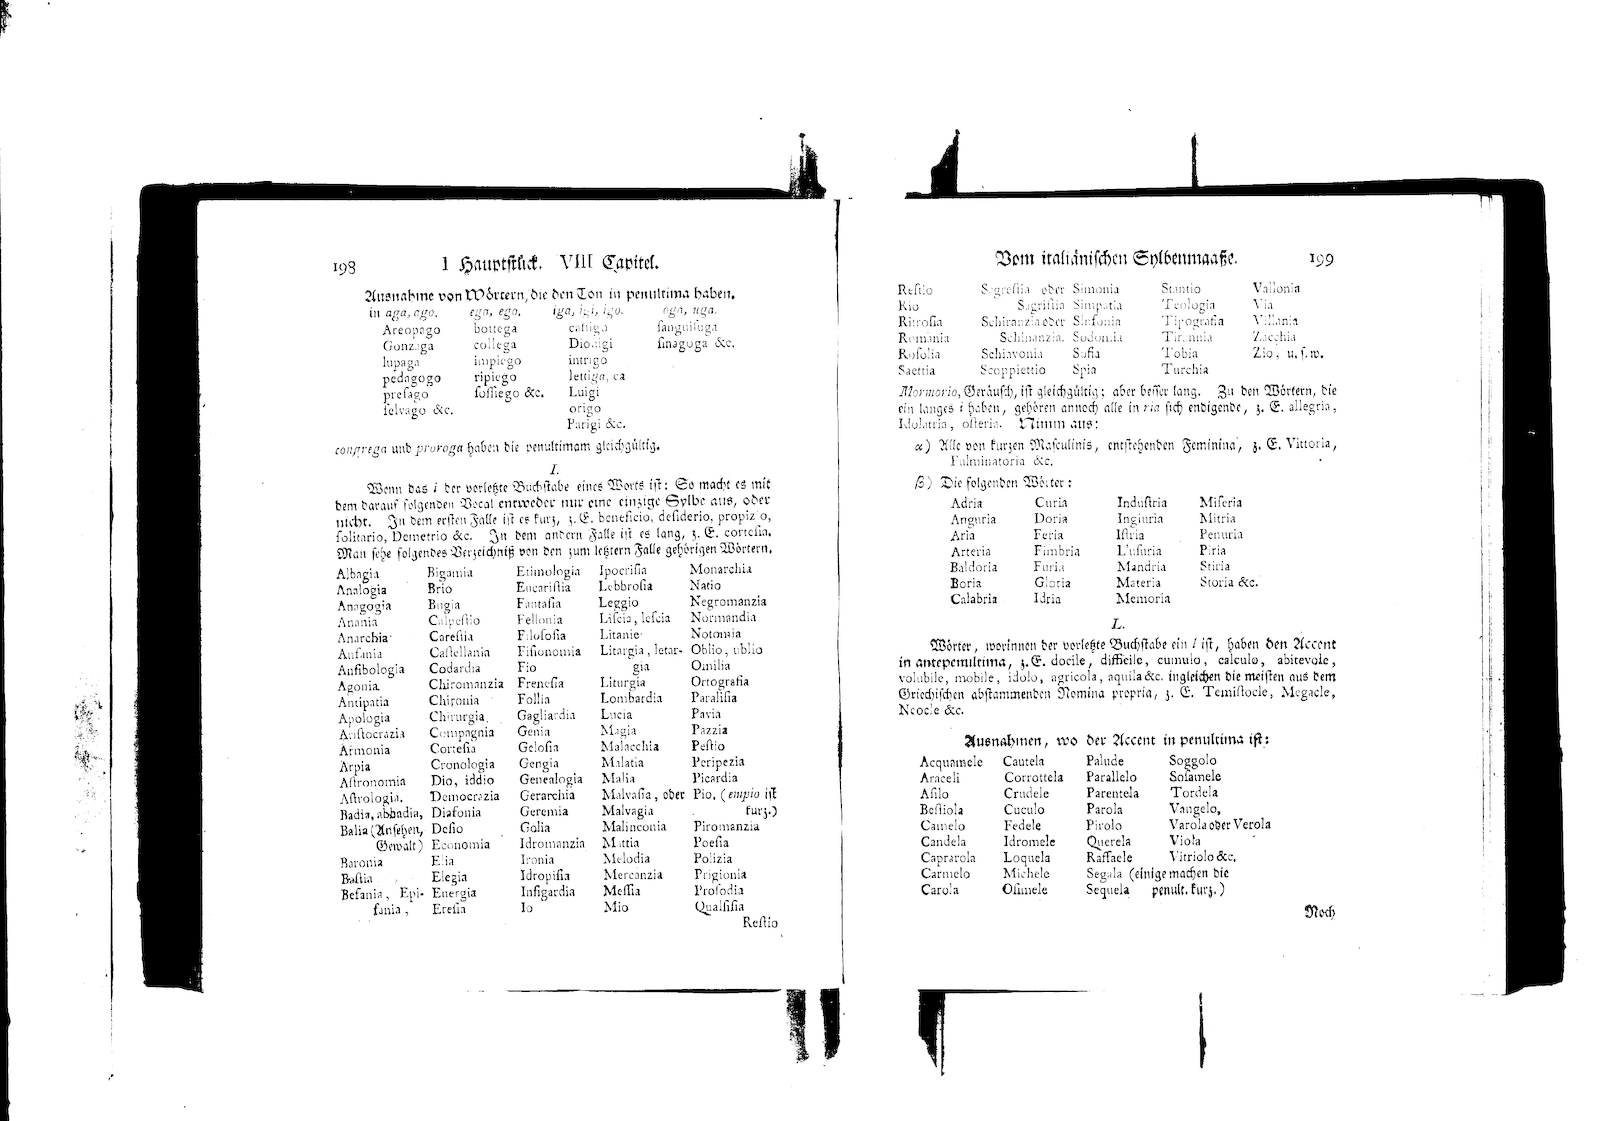 198 I Hauptstück. VIII Capitel.
Ausnahme von Wörtern, die den Ton in penultima haben.
in aga, ago. ega, ego. iga, igi, igo. oga, uga.
Areopago bottega castiga sanguisuga
Gonzaga collega Dionigi sinagoga &c.
lupaga impiego intrigo
pedagogo ripiego lettiga, ca
presago sossiego &c. Luigi
selvago &c. origo
Parigi &c.
congrega und proroga haben die penultimam gleichgültig.
I.
Wenn das i der vorletzte Buchstabe eines Worts ist: So macht es mit
dem darauf folgenden Vocal entweder nur eine einzige Sylbe aus, oder
nicht. In dem ersten Falle ist es kurz, z. E. beneficio, desiderio, propizio,
solitario, Demetrio &c. In dem andern Falle ist es lang, z. E. cortesia.
Man sehe folgendes Verzeichniß von den zum letztern Falle gehörigen Wörtern.
Albagia Bigamia Etimologia Ipocrisia Monarchia
Analogia Brio Eucaristia Lebbrosia Natio
Anagogia Bugia Fantasia Leggio Negromanzia
Anania Calpestio Fellonia Liscia, lescia Normandia
Anarchia Carestia Filosofia Litanie Notomia
Aufania Castellania Fisionomia Litargia, letar- Oblio, ublio
Anfibologia Codardia Fio gia Omilia
Agonia Chiromanzia Frenesia Liturgia Ortografia
Antipatia Chironia Follia Lombardia Paralisia
Apologia Chirurgia Gagliardia Lucia Pavia
Aristocrazia Compagnia Genia Magia Pazzia
Armonia Cortesia Gelosia Malacchia Pestio
Arpia Cronologia Gengia Malatia Peripezia
Astronomia Dio, iddio Genealogia Malia Picardia
Astrologia. Democrazia Gerarchia Malvasia, oder Pio. (empio ist
Badia, abbadia, Diafonia Geremia Malvagia kurz.)
Balia (Ansehen, Desio Golia Malinconia Piromanzia
Gewalt) Economia Idromanzia Mattia Poesia
Baronia Elia Ironia Melodia Polizia
Bastia Elegia Idropisia Mercanzia Prigionia
Befania, Epi- Energia Infigardia Messia Prosodia
fania, Eresia Io Mio Qualsisia
Restio
Vom italiänischen Sylbenmaaße. 199
Restio Sagrestia oder Simonia Stantio Vallonia
Rio Sagristia Simpatia Teologia Via
Ritrosia Schiranzia oder Sinfonia Tipografia Villania
Romania Schinanzia. Sodomia Tirannia Zacchia
Rosolia Schiavonia Sofia Tobia Zio, u. s. w.
Saettia Scoppiettio Spia Turchia
Mormorio, Geräusch, ist gleichgültig; aber besser lang. Zu den Wörtern, die
ein langes i haben, gehören annoch alle in ria sich endigende, z. E. allegria,
Idolatria, osteria. Nimm aus:
α) Alle von kurzen Masculinis, entstehenden Feminina, z. E. Vittoria,
Fulminatoria &c.
β) Die folgenden Wörter:
Adria Curia Industria Miseria
Anguria Doria Ingiuria Mitria
Aria Feria Istria Penuria
Arteria Fimbria L'usuria Piria
Baldoria Furia Mandria Stiria
Boria Gloria Materia Storia &c.
Calabria Idria Memoria
L.
Wörter, worinnen der vorletzte Buchstabe ein l ist, haben den Accent
in antepenultima, z. E. docile, difficile, cumulo, calculo, abitevole,
volubile, mobile, idolo, agricola, aquila &c. ingleichen die meisten aus dem
Griechischen abstammenden Nomina propria, z. E. Temistocle, Megacle,
Neocle &c.
Ausnahmen, wo der Accent in penultima ist:
Acquamele Cautela Palude Soggolo
Araceli Corrottela Parallelo Solamele
Asilo Crudele Parentela Tordela
Bestiola Cuculo Parola Vangelo,
Camelo Fedele Pirolo Varola oder Verola
Candela Idromele Querela Viola
Caprarola Loquela Raffaele Vitriolo &c.
Carmelo Michele Segala (einige machen die
Carola Osimele Sequela penult. kurz.)
Noch